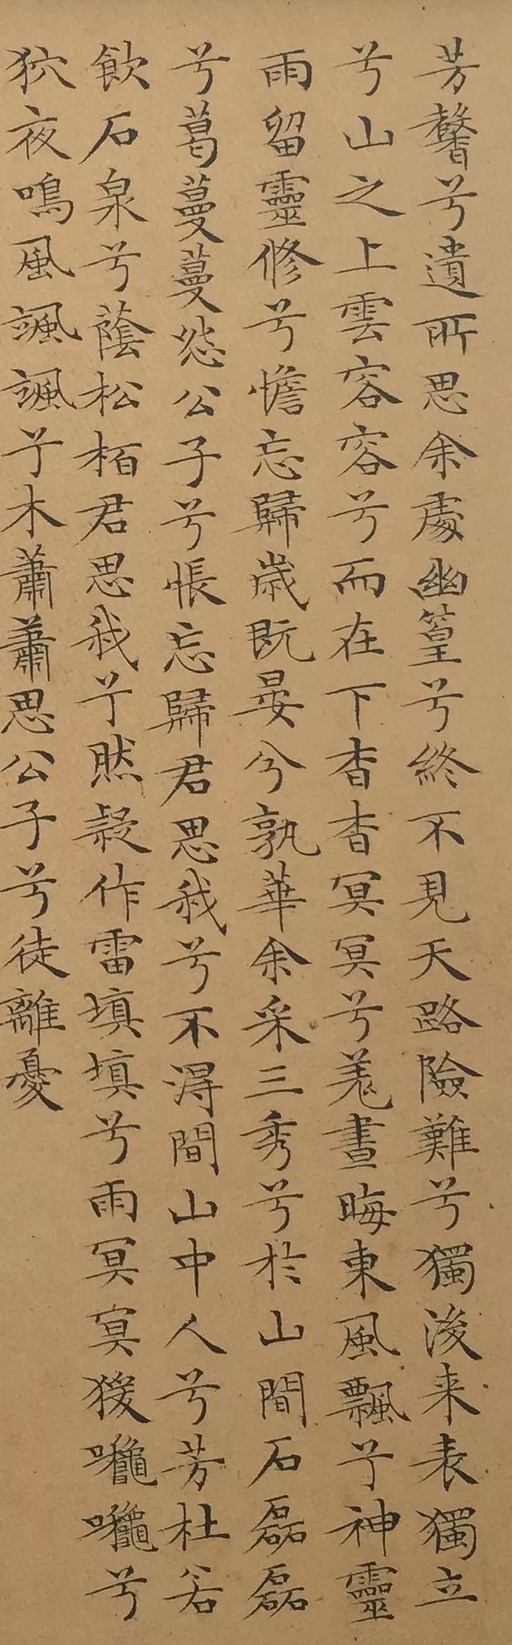 芳馨兮遺所思余處幽篁兮終不見天路險難兮獨後来表獨立
兮山之上雲容容兮而在下杳杳冥冥兮羌晝晦東風飄兮神靈
雨留靈修兮憺忘歸歲既晏兮孰華余采三秀兮於山間石磊磊
兮葛蔓蔓怨公子兮悵忘歸君思我兮不得間山中人兮芳杜若
飲石泉兮蔭松栢君思我兮然疑作雷填填兮雨冥冥猨嚨嚨兮
狖夜鳴風颯颯兮木蕭蕭思公子兮徒離憂